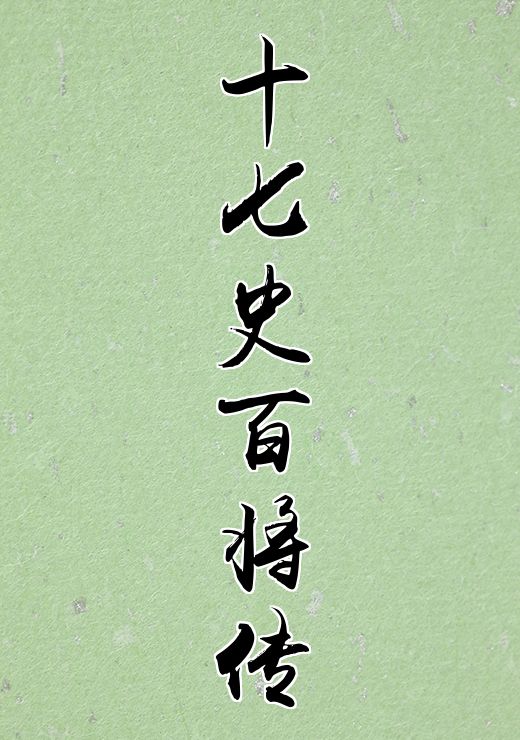 十七史百将传